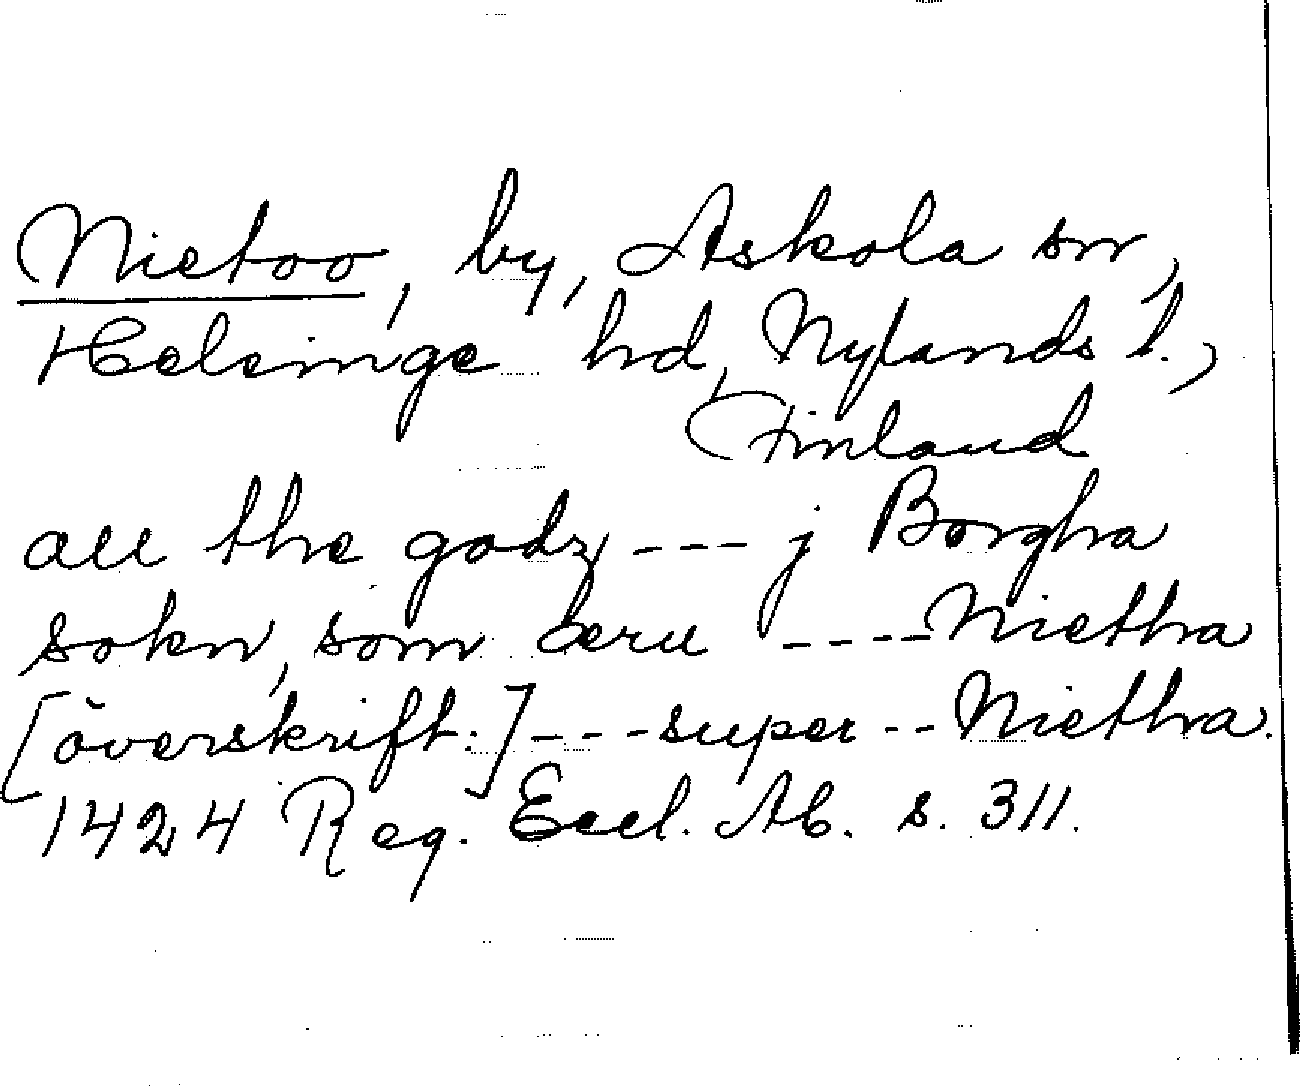 Nietoo, by, Askola sn,
Helsinge hd, Nylands l.,
Finland
all the godz --- j Borgha
sokn, som æru ---- Nietha
[överskrift:] --- super -- Nietha.
1424 Reg. Eccl. Ab. s. 311.